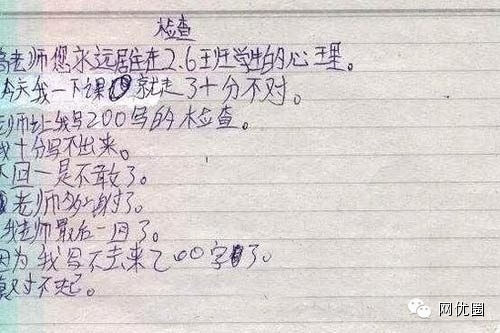 检查
老师您永远居住在2.6班学生的心理。
今天我一下课就走了十分不对。
老师让我写200写的检查。
我十分写不出来。
下回一是不敢了。
老师多谢了。
老师最后一回了。
因为我写不去来200字了。
对不起。
网优圈